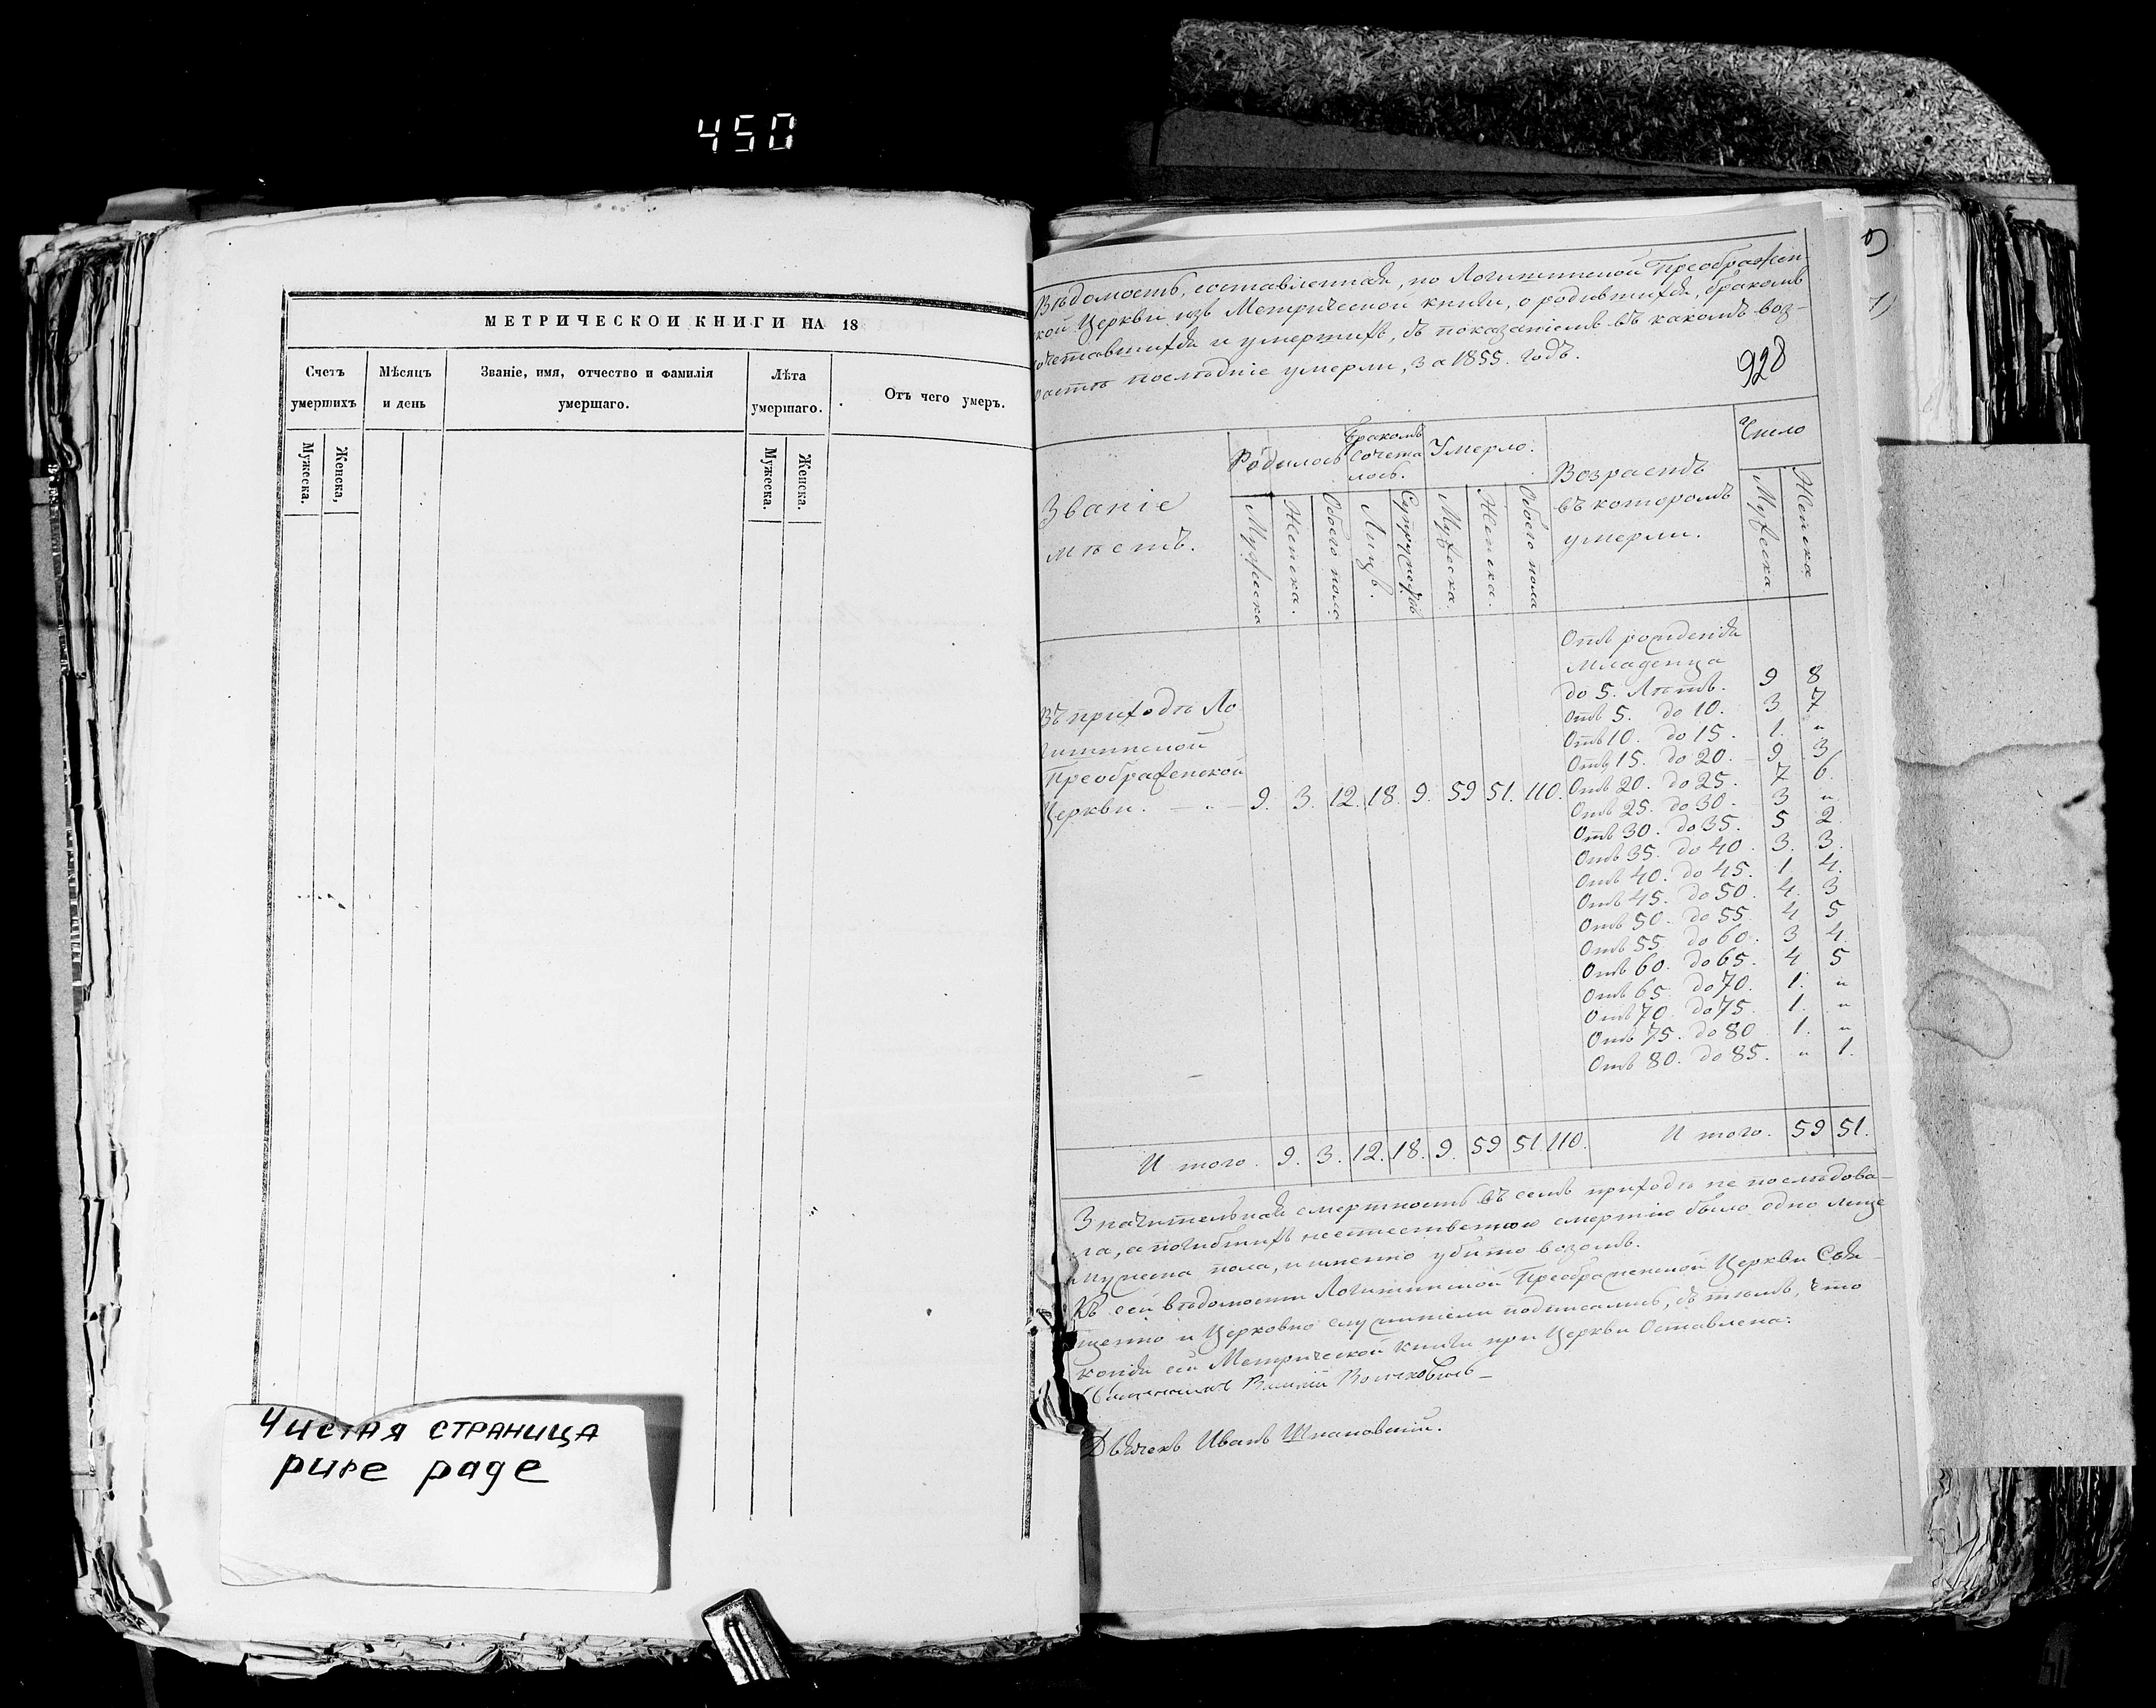 450
МЕТРИЧЕСКОЙ КНИГИ НА 18
Счетъ умершихъ
Мѣсяцъ и день
Званіе, имя, отчество и фамилія умершаго.
Лѣта умершаго.
Отъ чего умеръ.
Мужеска.
Женска,
Мужеска.
Женска.
Чистая страница
pure page
Вѣдомость, составленная, по Логишинской Преображен-
ской Церкви изъ Метрической книги, о родившихся, бракомъ
сочетавшихся и умершихъ, съ показаніемъ въ какомъ воз-
растѣ послѣдніе умерли, за 1855. годъ.
928
Званіе мѣстъ.
Родилось
Бракомъ сочета лось.
Умерло.
Возрастъ въ которомъ умерли.
Число
Мужеска
Женска.
Обоего пола
Лицъ.
Супружествъ
Мужеска.
Женска.
Обоего пола
Мужеска
Женска
Отъ рожденія
Младенца
до 5. Лѣтъ. 9 8
Отъ 5. до 10. 3 7
Отъ 10. до 15. 1. "
Отъ 15. до 20. 9 3
Отъ 20. до 25. 7 6.
Отъ 25. до 30. 3 "
Отъ 30. до 35. 5 2.
Отъ 35. до 40. 3. 3.
Отъ 40. до 45. 1 4.
Отъ 45. до 50. 4. 3
Отъ 50. до 55. 4 5
Отъ 55. до 60. 3 4.
Отъ 60. до 65. 4 5
Отъ 65. до 70. 1. "
Отъ 70. до 75. 1. "
Отъ 75. до 80. 1. "
Отъ 80. до 85. " 1.
Въ приходѣ Ло
гишинской
Преображенской
Церкви. — " — 9. 3. 12. 18. 9. 59 51. 110.
И того. 9. 3. 12. 18. 9. 59 51. 110. И того. 59 51.
Значительная смертность въ семъ приходѣ не послѣдова-
ла, а погибшихъ неестественною смертію было одно лице
мужеска пола, именно убито возомъ.
Къ сей вѣдомости Логишинской Преображенской Церкви Свя-
щенно и Церковно служители подписались, съ тѣмъ, что
копія сей Метрической книги при Церкви Оставлена:
Священникъ
Дьячекъ Иванъ Шпановскій.